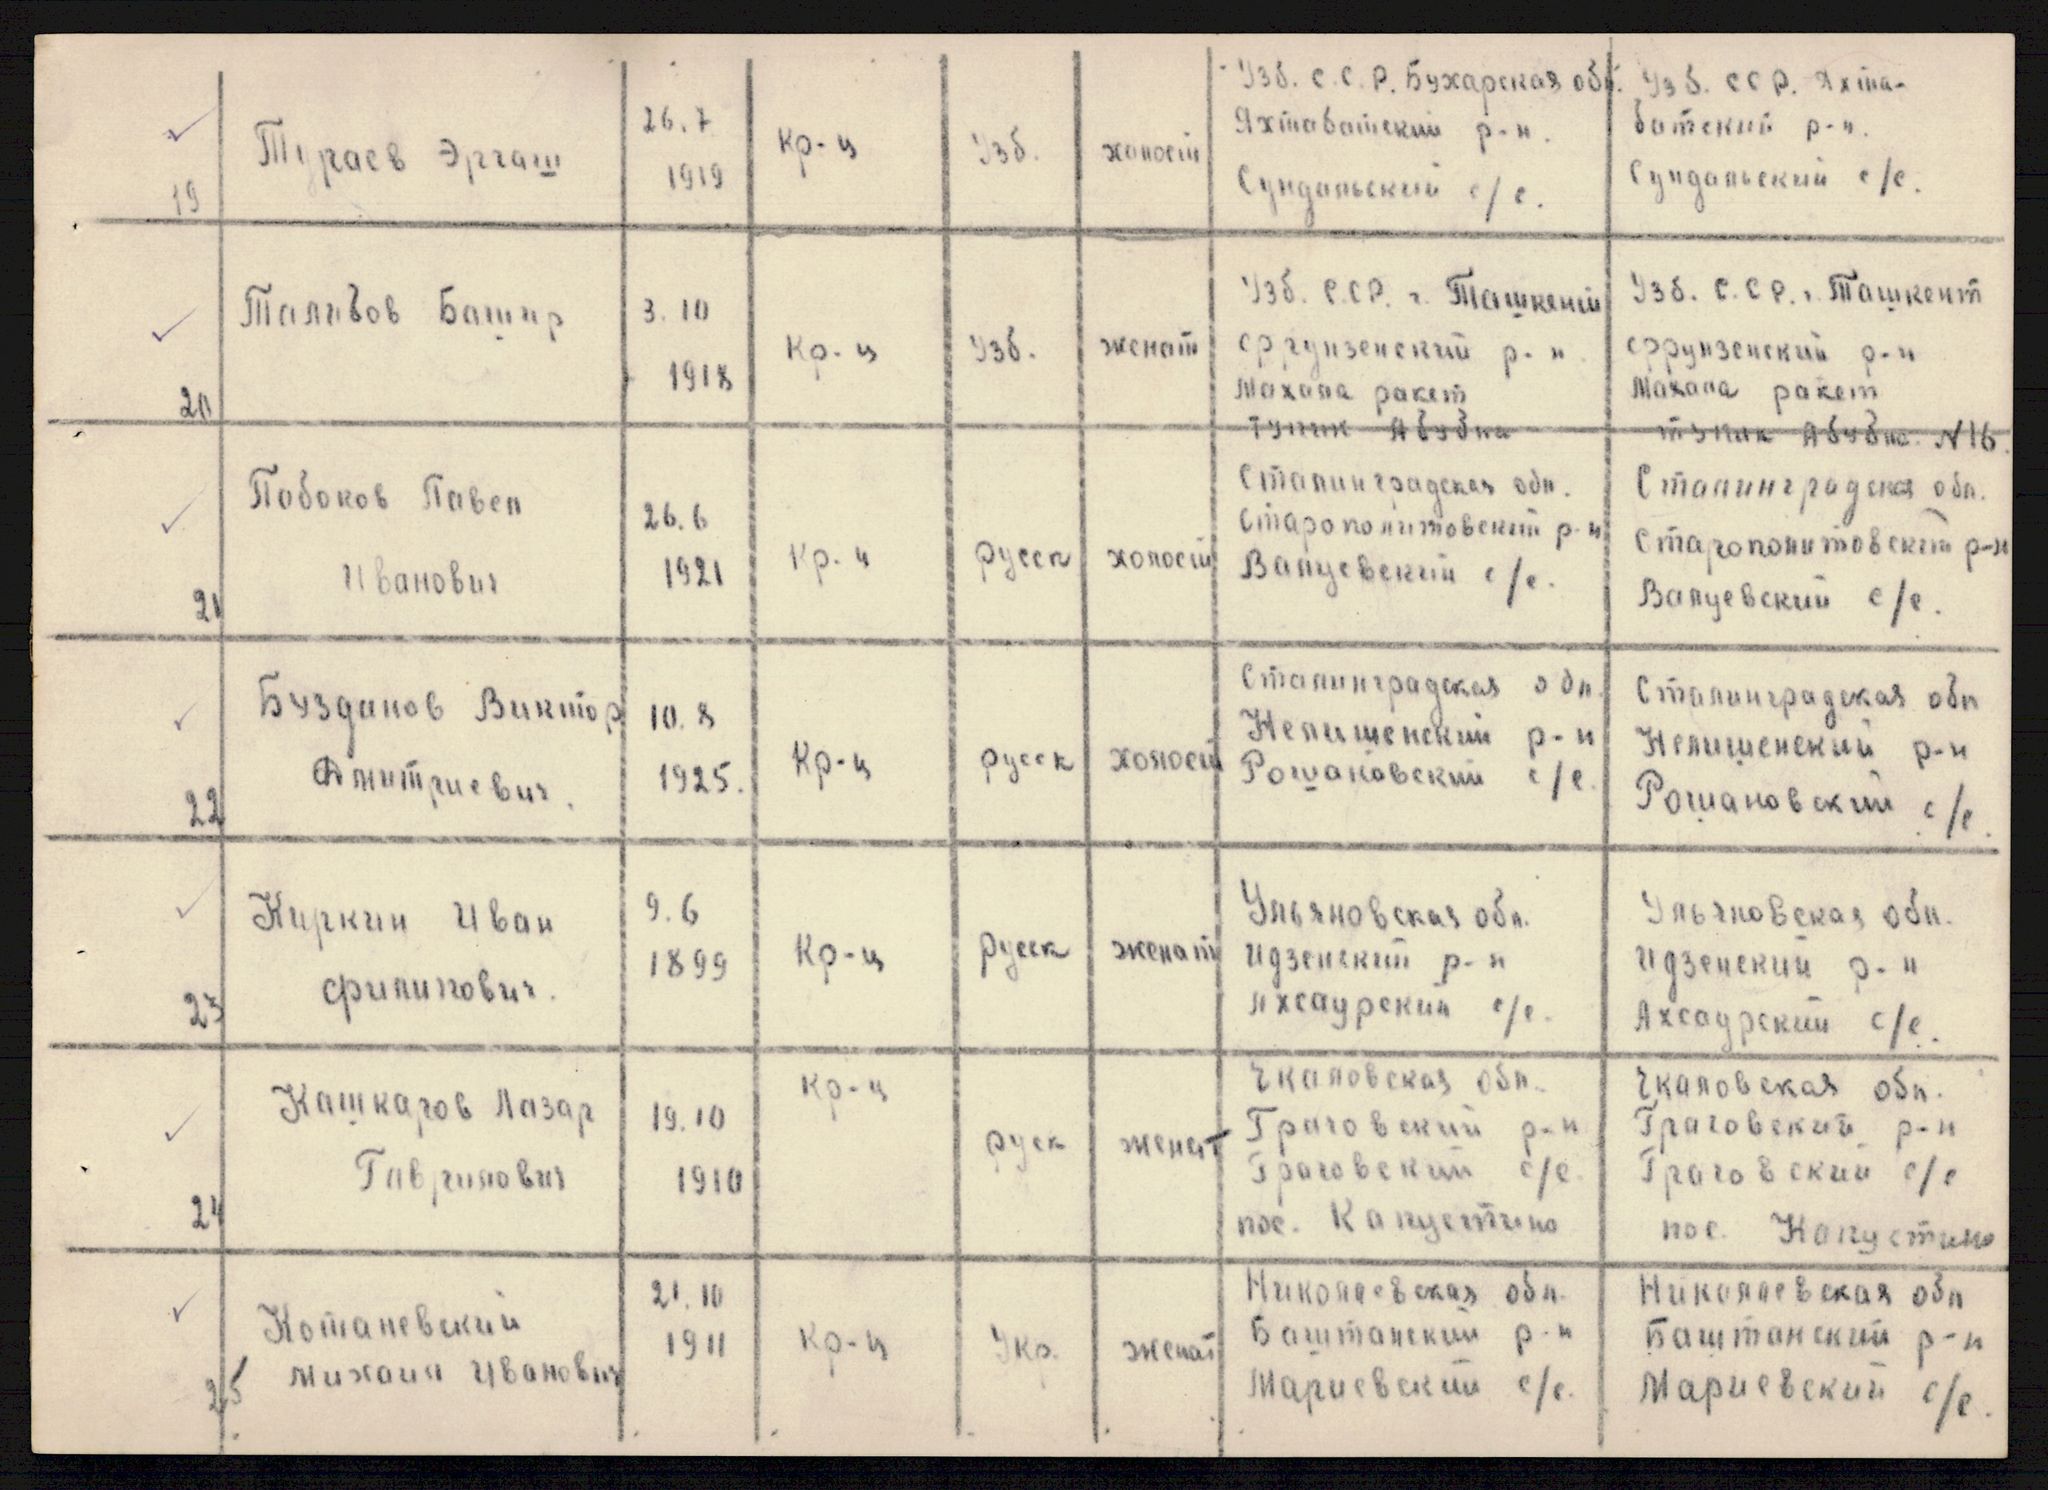 19
Тураев Эргаш
26.7
1919
Кр-ц
Узб.
холостй
Узб. С.С.Р. Бухарская обл.
Яхтабатский р-н.
Сундальский с/с.
Узб. ССР. Яхта-
батский р-н.
Сундальский с/с.
20
Талибов Башир
3.10
1918
Кр-ц
Узб.
женат
Узб. С.СР. г. Ташкент
фрунзенский р-н.
Махала ракет
тупик Абубка
Узб. С.СР. г. Ташкент
фрунзенский р-н
Махала ракет
тупик Абубка. N 16.
21
Побоков Павел
Иванович
26.6
1921
Кр-ц
русск
холостй
Сталинградская обл.
Старополитовский р-н
Валуевский с/с.
Сталинградская обл.
Старополитовский р-н
Валуевский с/с.
22
Бузданов Виктор
Дмитриевич.
10.8
1925.
Кр-ц
русск
холостй
Сталинградская обл.
Нелишенский р-н
Рошаковский с/с.
Сталинградская обл
Нелишенский р-н
Рошановский с/с.
23
Киркин Иван
филипович.
9.6
1899
Кр-ц
русск
женат
Ульяновская обл.
Идзенский р-н
Ахсаурский с/с.
Ульяновская обл.
Идзенский р-н
Ахсаурский с/с.
24
Кашкаров Лазар
Гаврилович
19.10
1910
Кр-ц
руск
женат
Чкаловская обл.
Граговский р-н
Граговский с/с.
пос. Капустино
Чкаловская обл.
Граговский р-н
Граговский с/с
пос. Капустино
25
Котаневский
Михаил Иванович
21.10
1911
Кр-ц
Укр.
женат
Николаевская обл.
Баштанский р-н
Мариевский с/с.
Николаевская обл
Баштанский р-н
Мариевский с/с.